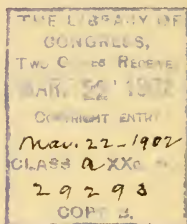 THE LIBRARY OF
CONGRESS,
TWO COPIES RECEIVED
MAR. 22 1902
COPYRIGHT ENTRY
Mar. 22-1902
CLASS a XXc. No.
29293
COPY B.